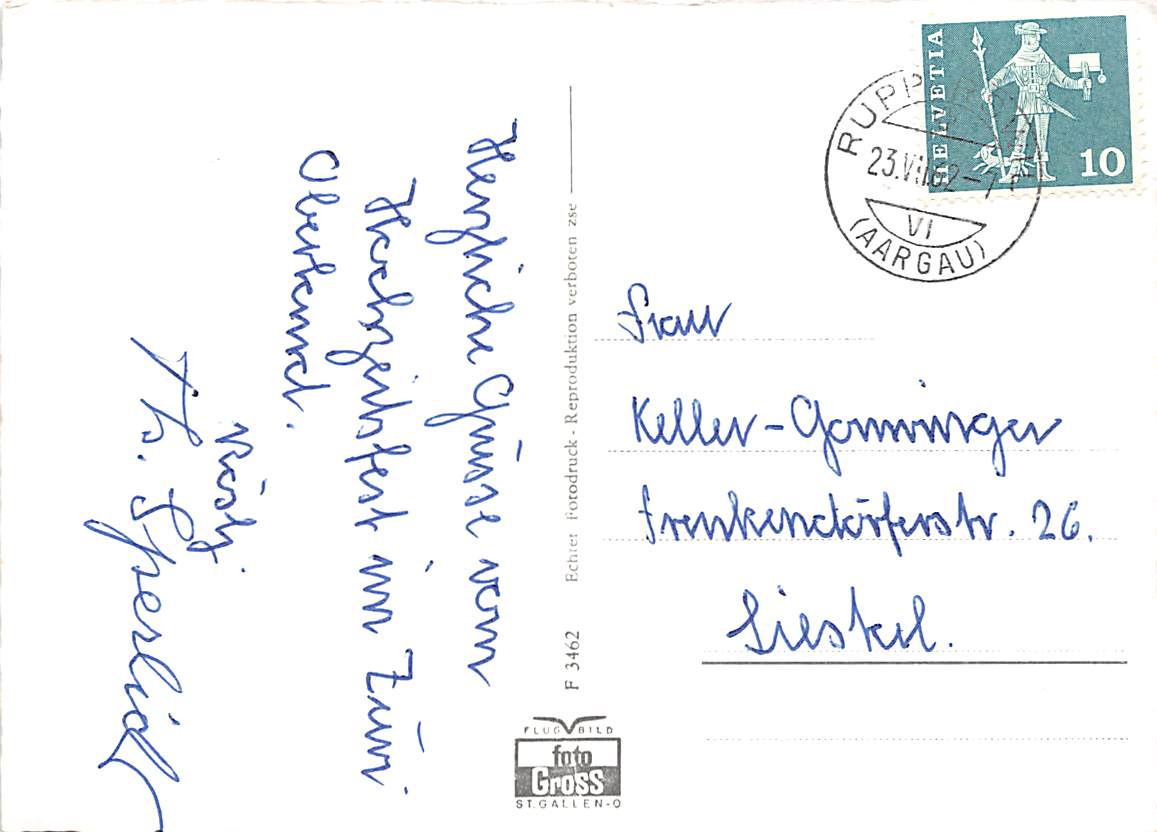 Herzliche Grüsse vom
Hochzeitsfest im Züri
Oberland.
Rösly
Th.
Echter Fotodruck - Reproduktion verboten zse
F 3462
FLUG BILD
foto
Gross
ST. GALLEN-O
HELVETIA
10
RUPP
23.VII.62-7
VI
(AARGAU)
Frau
Keller-Gomringer
Frenkendörferstr. 26.
Liestal.